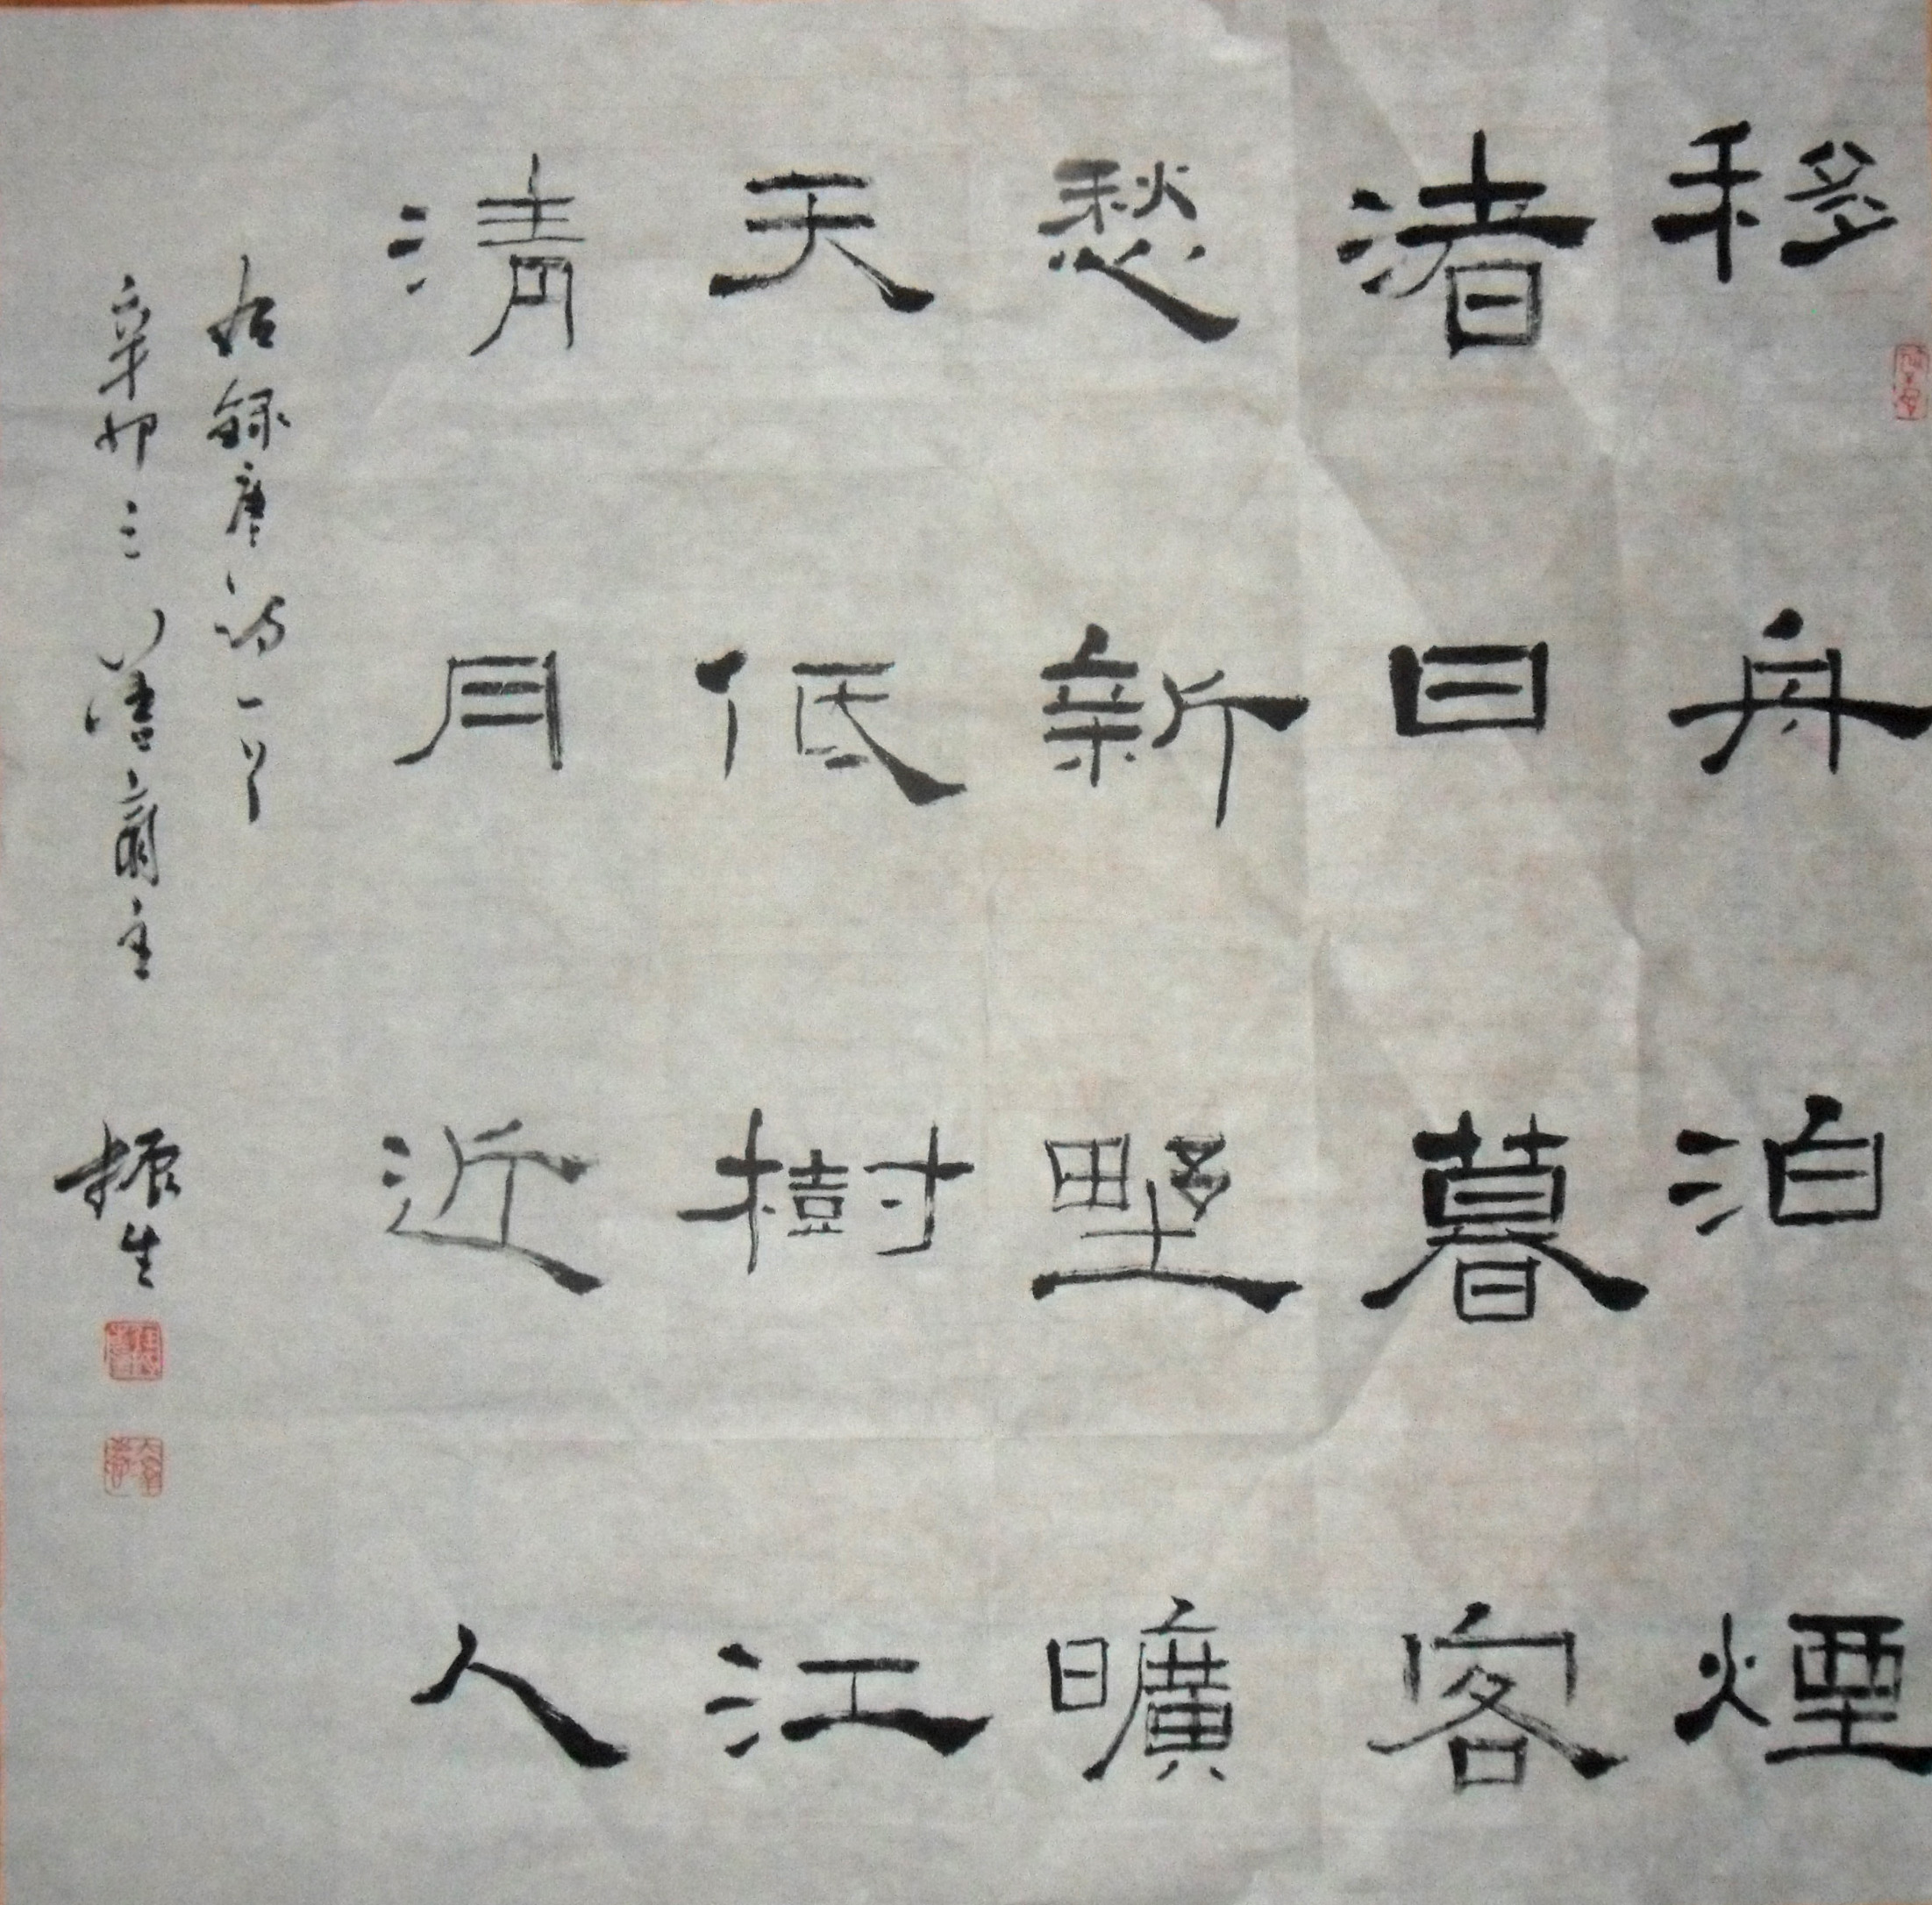 移舟泊煙
渚日暮客
愁新野曠
天低樹江
清月近人
右錄唐詩一首
辛卯之
齋主
振生